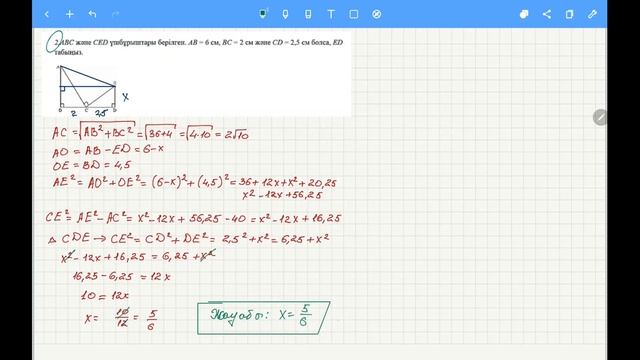 2. ABC және CED үшбұрыштары берілген. AB = 6 см, BC = 2 см және CD = 2,5 см болса, ED
табыңыз.
A
E
x
B C D
2 2,5
AC = √AB² + BC² = √36+4 = √4·10 = 2√10
AO = AB - ED = 6-x
OE = BD = 4,5
AE² = AO² + OE² = (6-x)² + (4,5)² = 36 + 12x + x² + 20,25
x² - 12x + 56,25
CE² = AE² - AC² = x² - 12x + 56,25 - 40 = x² - 12x + 16,25
△ CDE → CE² = CD² + DE² = 2,5² + x² = 6,25 + x²
x² - 12x + 16,25 = 6,25 + x²
16,25 - 6,25 = 12x
10 = 12x
x = 10/12 = 5/6
Жауабы: x = 5/6